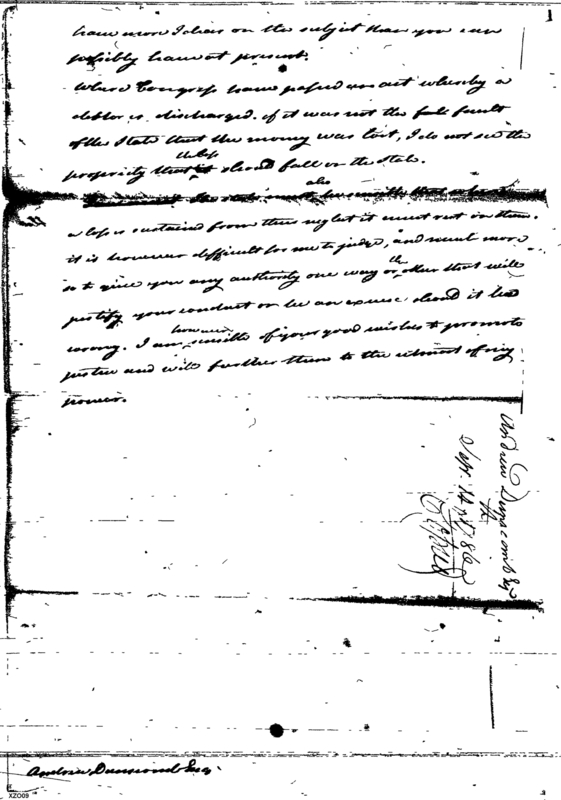 1
have more Ideas on the subject than you can
possibly have at present.
Where Congress have passed an act whereby a
debtor is discharged. if it was not the full fault
of the State that the money was lost, I do not see the
the loss
propriety that it should fall on the State.
also
a loss is sustained from their neglect it must rest on them.
it is however difficult for me to judge, and much more
so to give you any authority one way or the other that will
justify your conduct or be an excuse should it be
wrong. I am however sensible of your good wishes to promote
justice and will further them to the utmost of my
power.
Andrew Dunscomb Esq
Sept. 14th 1786
Andrew Dunscomb Esq.
XZO09